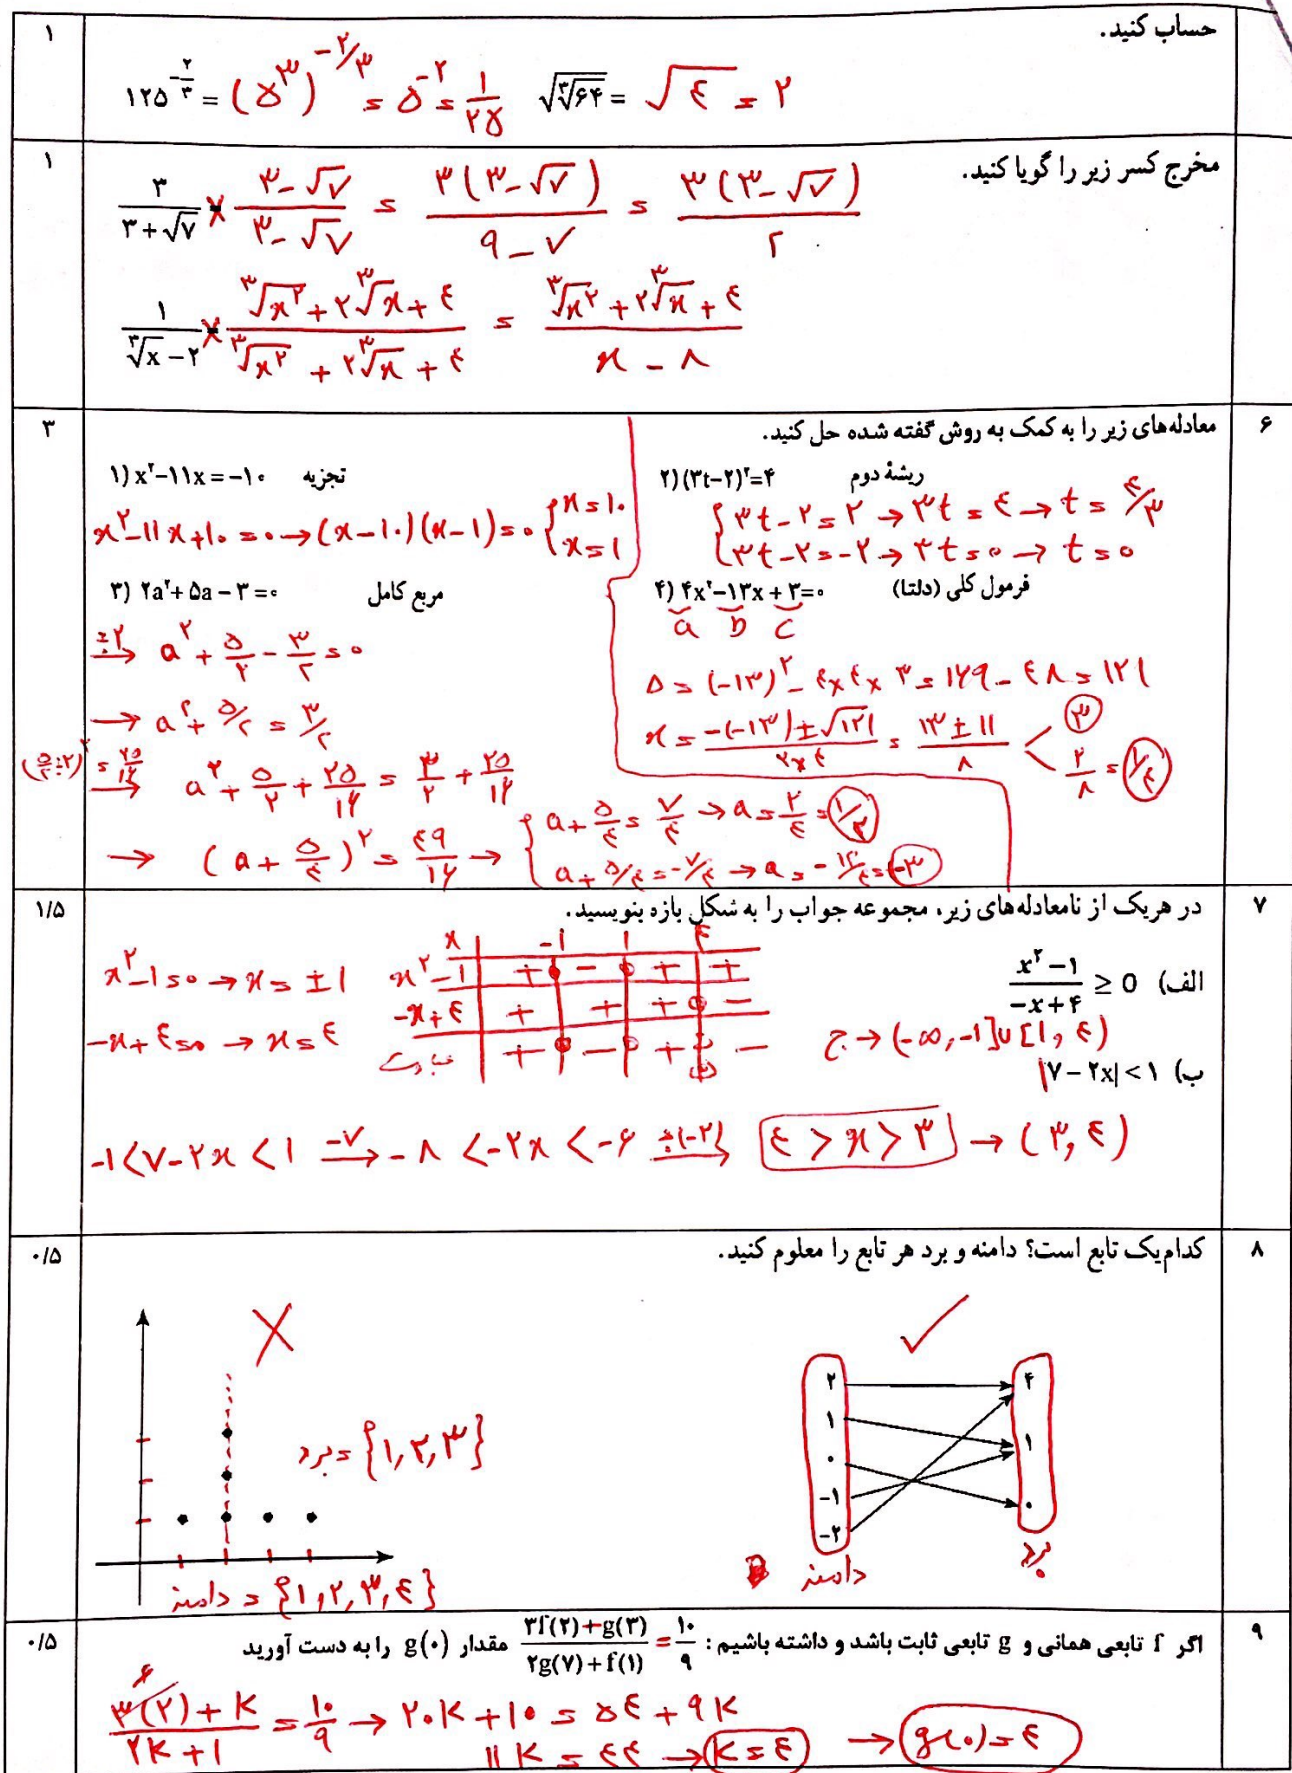 حساب کنید.
۱
۱۲۵^(-۲/۳) = (۵^۳)^(-۲/۳) = ۵^-۲ = ۱/۲۵   √(∛۶۴) = √۴ = ۲
مخرج کسر زیر را گویا کنید.
۱
۳/(۳+√۷) × (۳-√۷)/(۳-√۷) = ۳(۳-√۷)/(۹-۷) = ۳(۳-√۷)/۲
۱/(∛x-۲) × (∛x^۲+۲∛x+۴)/(∛x^۲+۲∛x+۴) = (∛x^۲+۲∛x+۴)/(x-۸)
۶ معادله‌های زیر را به کمک به روش گفته شده حل کنید. ۳
۱) x^۲-۱۱x=-۱۰ تجزیه
x^۲-۱۱x+۱۰=۰ → (x-۱۰)(x-۱)=۰ { x=۱۰
x=۱
۲) (۳t-۲)^۲=۴ ریشهٔ دوم
{ ۳t-۲=۲ → ۳t=۴ → t=۴/۳
۳t-۲=-۲ → ۳t=۰ → t=۰
۳) ۲a^۲+۵a-۳=۰ مربع کامل
÷۲ → a^۲+۵/۲-۳/۲=۰
→ a^۲+۵/۲=۳/۲
(۵/۲÷۲)^۲=۲۵/۱۶ → a^۲+۵/۲+۲۵/۱۶=۳/۲+۲۵/۱۶
→ (a+۵/۴)^۲=۴۹/۱۶ → { a+۵/۴=۷/۴ → a=۲/۴=۱/۲
a+۵/۴=-۷/۴ → a=-۱۲/۴=-۳
۴) ۴x^۲-۱۳x+۳=۰ فرمول کلی (دلتا)
a b c
Δ=(-۱۳)^۲-۴×۴×۳=۱۶۹-۴۸=۱۲۱
x=(-(-۱۳)±√۱۲۱)/(۲×۴)=(۱۳±۱۱)/۸ < ۳
۲/۸=۱/۴
۷ در هریک از نامعادله‌های زیر، مجموعه جواب را به شکل بازه بنویسید. ۱/۵
الف) (x^۲-۱)/(-x+۴) ≥ 0
x^۲-۱=۰ → x=±۱
-x+۴=۰ → x=۴
x -۱ ۱ ۴
x^۲-۱ + - + +
-x+۴ + + + -
عبارت + - + ت ن -
ج → (-∞,-۱]∪[۱,۴)
ب) |۷-۲x|<۱
-۱<۷-۲x<۱ -۷→ -۸<-۲x<-۶ ÷(-۲)→ ۴>x>۳ → (۳,۴)
۸ کدام‌یک تابع است؟ دامنه و برد هر تابع را معلوم کنید. ۰/۵
برد={۱,۲,۳}
دامنه={۱,۲,۳,۴}
۲ ۴
۱ ۱
۰ ۰
-۱
-۲
دامنه برد
۹ اگر f تابعی همانی و g تابعی ثابت باشد و داشته باشیم: (۳f(۲)+g(۳))/(۲g(۷)+f(۱))=۱۰/۹ مقدار g(۰) را به دست آورید ۰/۵
۶
(۳(۲)+K)/(۲K+۱)=۱۰/۹ → ۲۰K+۱۰=۵۴+۹K
۱۱K=۴۴ → K=۴ → g(۰)=۴